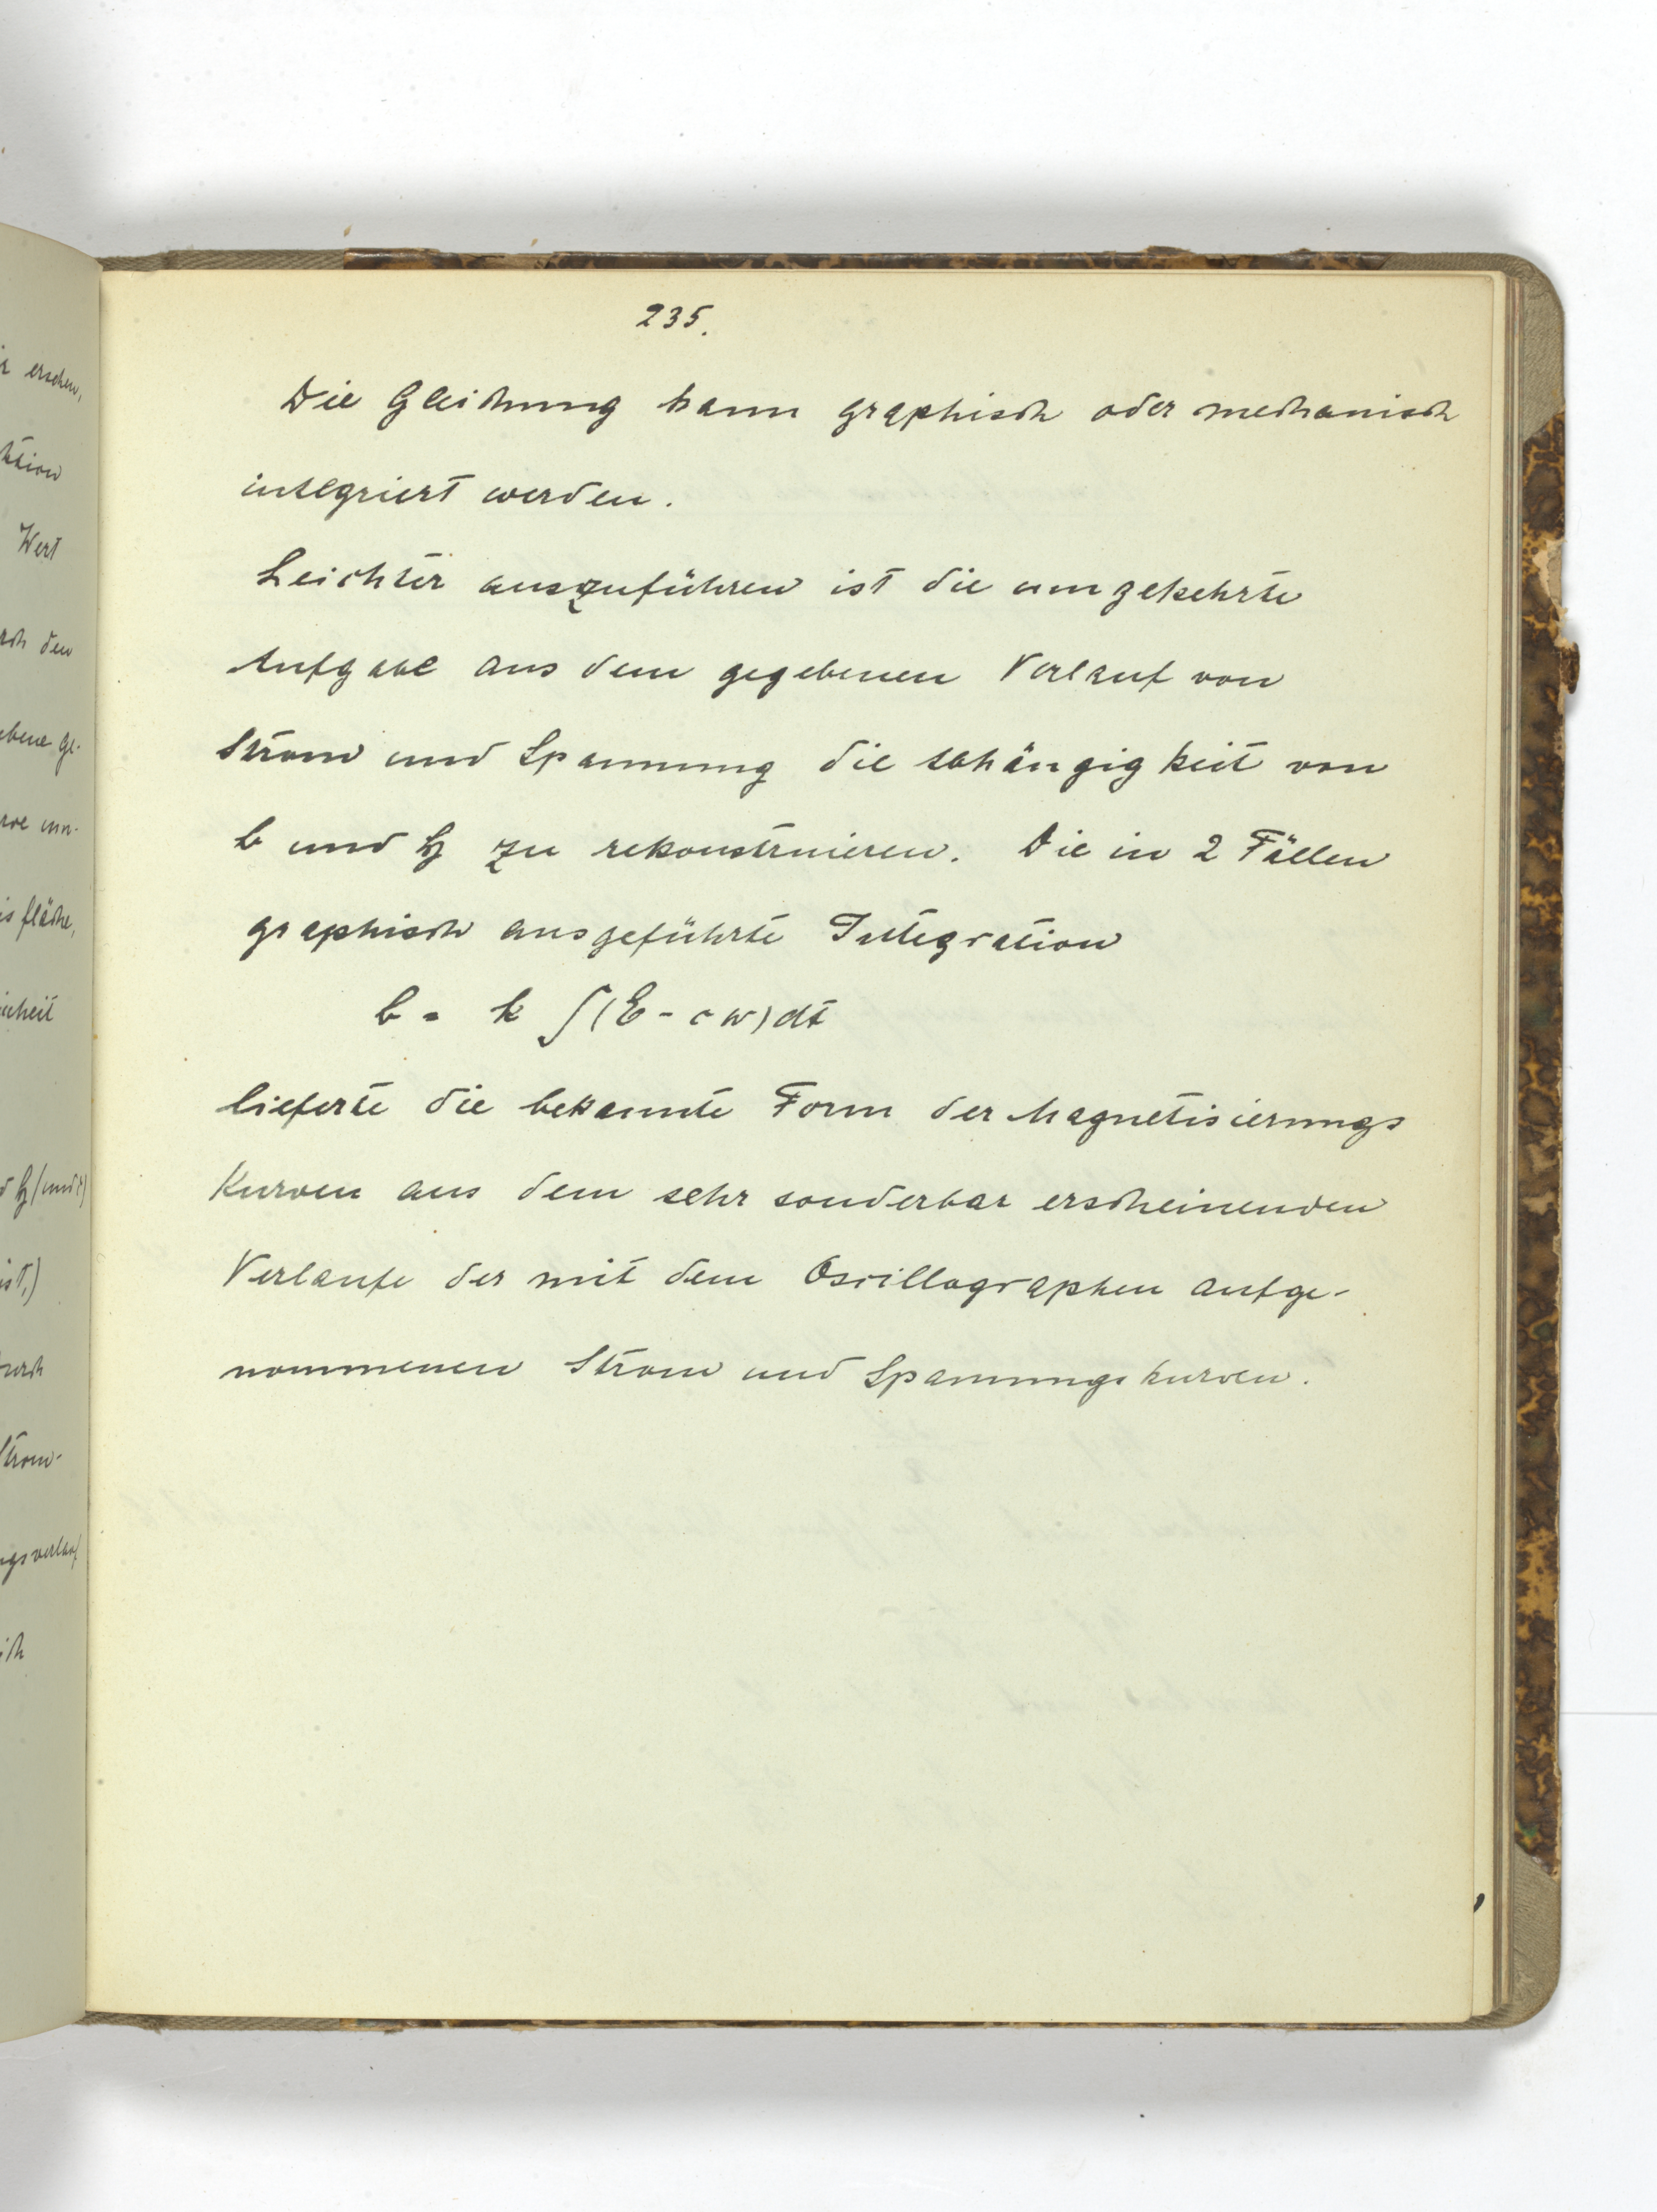 r ersehen,
ktion
Wert
rch den
ebene ge-
rve un-
is fläche,
nheit
d H (und c)
ist,)
durch
Strom-
ngsverlauf
ich
235.
Die Gleichung kann graphisch oder mechanisch
integriert werden.
Leichter auszuführen ist die umgekehrte
Aufgabe aus dem gegebenen Verlauf von
Strom und Spannung die Abhängigkeit von
b und H zu rekonstruieren. Die in 2 Fällen
graphisch ausgeführte Integration
b = k ∫(E - c w) dt
lieferte die bekannte Form der Magnetisierungs
Kurven aus dem sehr sonderbar erscheinenden
Verlaufe der mit dem Oscillographen aufge-
nommenen Strom und Spannungskurven.